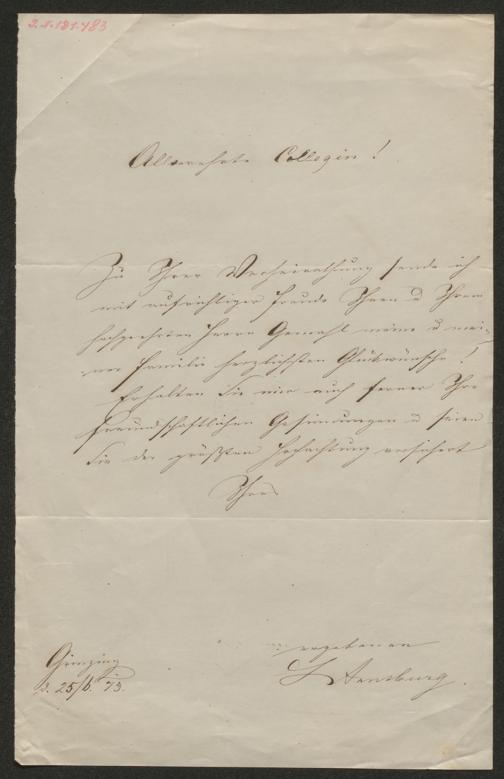 Allverehrte Collegin!
Zu Ihrer Verheirathung sende ich
mit aufrichtiger Freude Ihnen u Ihrem
hochgeehrten Herrn Gemahl meine u mei-
ner Familie herzlichsten Glükwünsche!
Erhalten Sie mir auch ferner Ihre
freundschaftlichen Gesinnungen u seien
Sie der größten Hochachtung versichert
Ihres
ergebenen
L Arnsburg.
Grinzing
d. 25/6. 73.